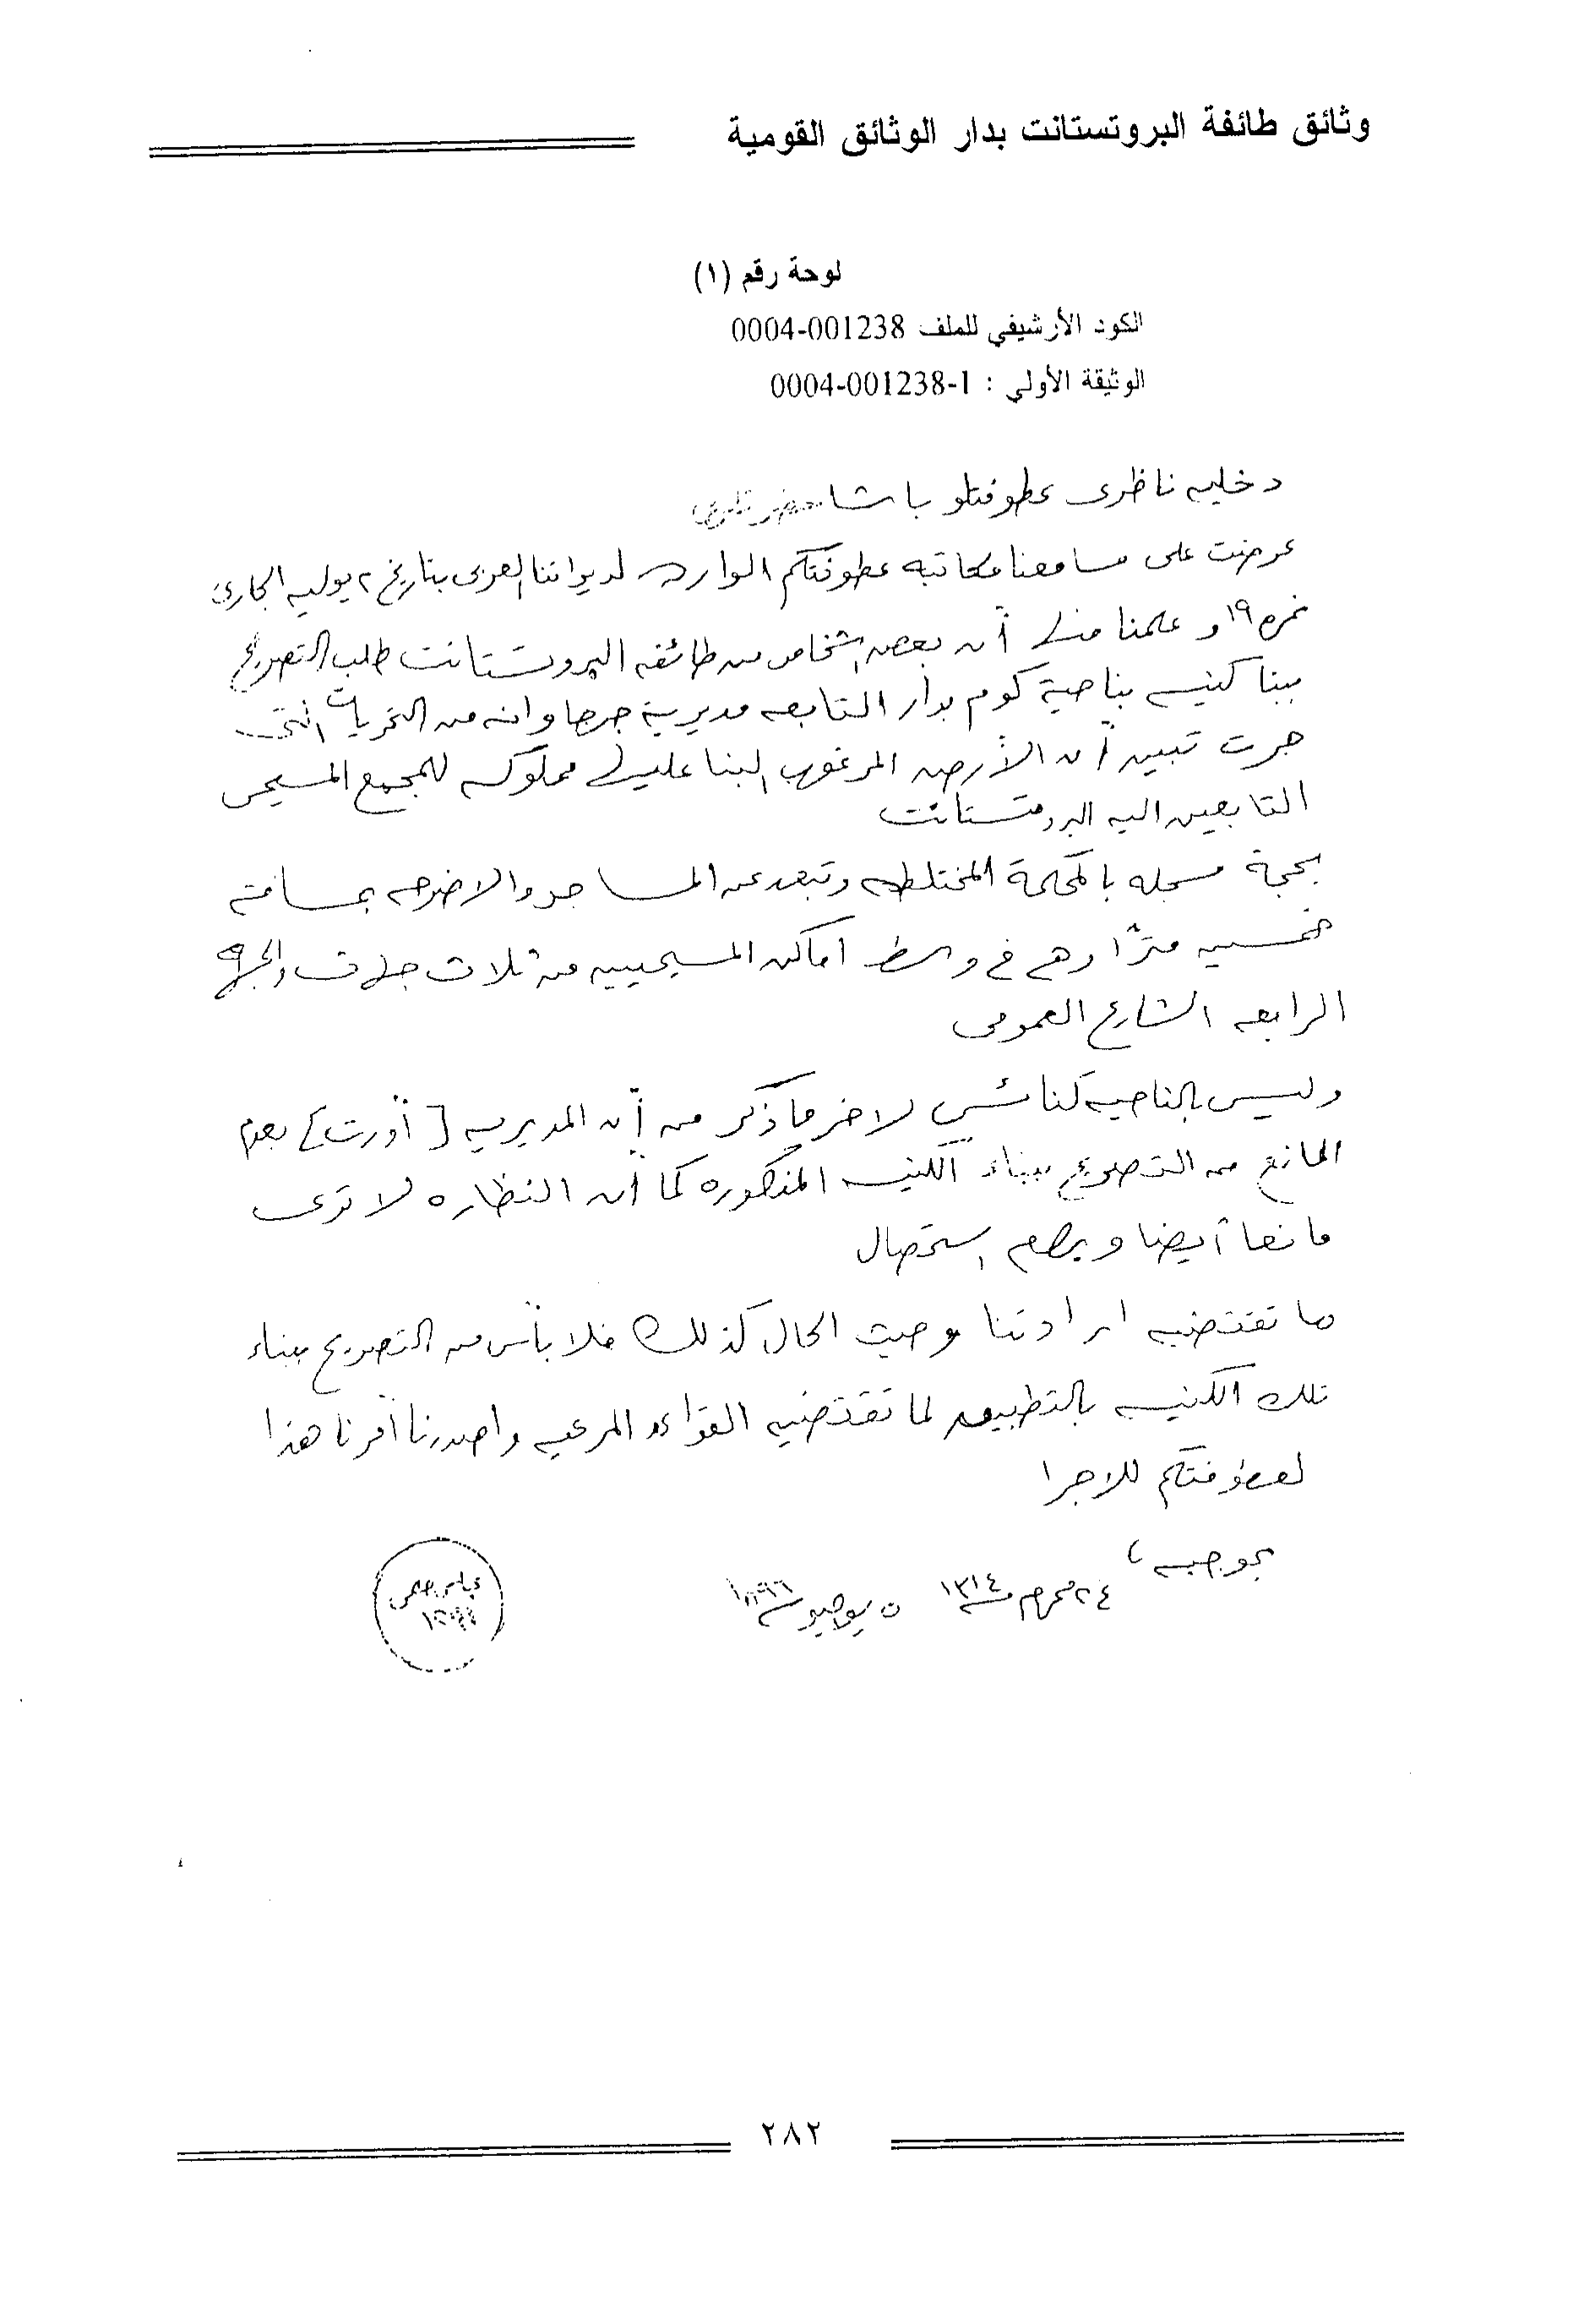 وثائق طائفة البروتستانت بدار الوثائق القومية
لوحة رقم (١)
الكود الأرشيفي للملف 0004-001238
الوثيقة الأولي : 0004-001238-1
دخليه ناظرى عطوفتلو باشا حضرتلرى
عرضت على مسامعنا مكاتبه عطوفتكم الوارده لديواننا العربى بتاريخ ٢ يوليه الجارى
نمره ١٩ وعلمنا منها أن بعض اشخاص من طائفه البروتستانت طلب التصريح
ببنا كنيسه بناحية كوم بدار التابعه مديرية جرجا وانه من التحريات التى
جرت تبين أن الأرض المرغوب البنا عليها مملوكه للمجمع المسيحى
التابعين اليه البروتستانت
بحجة مسجله بالمحكمة المختلطه وتبعد عن المساجد والاضرحه بمسافة
خمسين مترًا وهى فى وسط اماكن المسيحيين من ثلاث جهات والجهه
الرابعه الشارع العمومى
وليس بالناحيه كنائس لاخر ما ذكر من أن المديريه [أورت] بعدم
المانع من التصريح ببناء الكنيسه المذكوره كما أن النظاره لا ترى
مانعا أيضا ويرام استحصال
ما تقتضيه ارادتنا وحيث الحال كذلك فلا بأس من التصريح ببناء
تلك الكنيسه بالتطبيق لما تقتضيه القواعد المرعيه واصدرنا أمرنا هذا
لعطوفتكم للاجرا
بموجبه
٢٤ محرم سنة ١٣١٤ ٥ سنة ١٨٩٦
عباس حلمى
٢٨٢